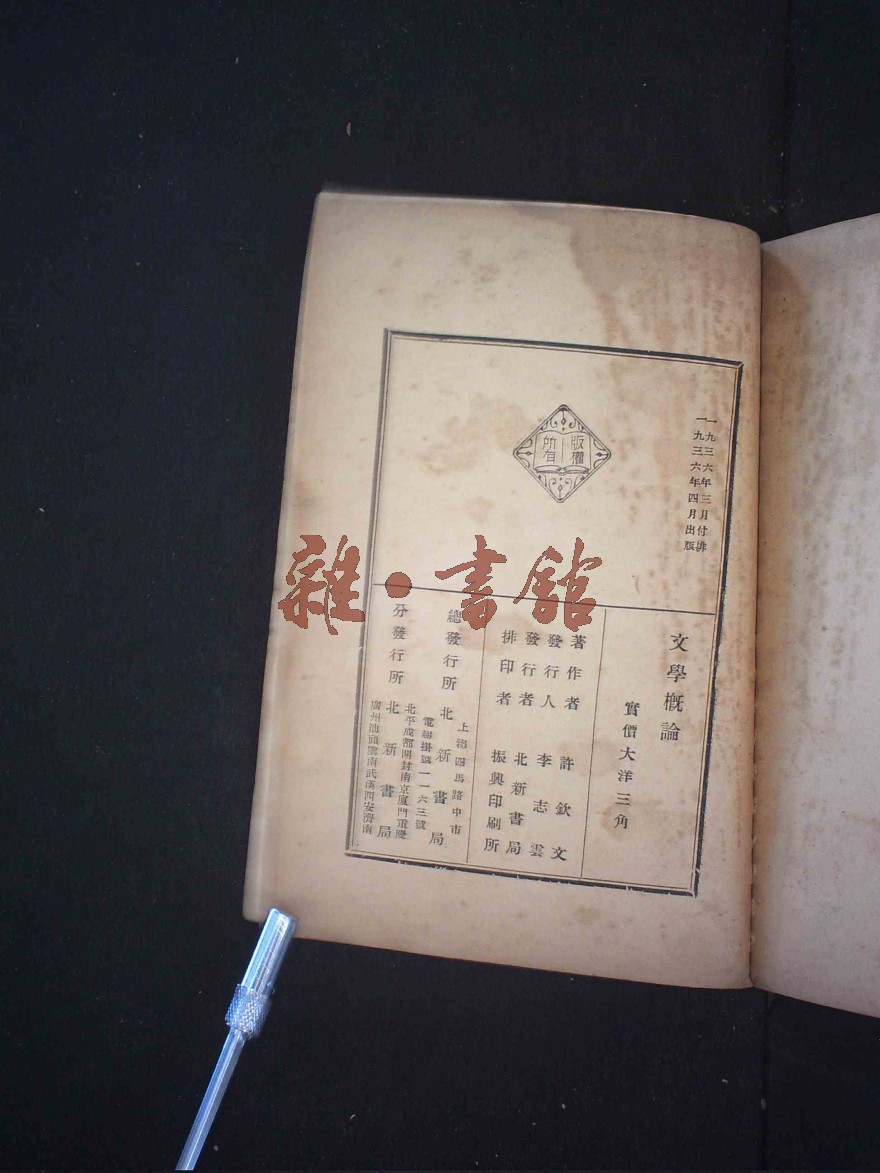 一九三六年三月付排
一九三六年四月出版
版權
所有
文學概論
實價大洋三角
著作者 許欽文
發行人 李志雲
發行者 北新書局
排印者 振興印刷所
總發行所 北新書局
上海四馬路中市
電報掛號一一六三號
分發行所 北新書局
北平成都開封南京廈門重慶
廣州汕頭雲南武漢西安濟南
雜·書館